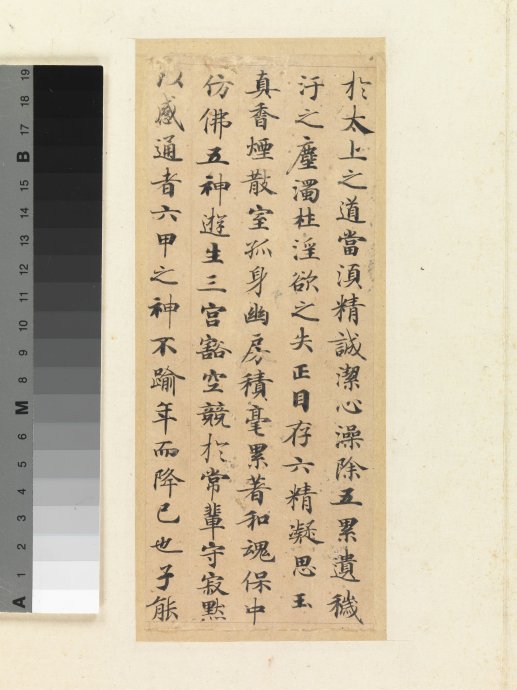 扵太上之道當湏精誠潔心澡除五累遺穢
汙之塵濁杜淫欲之失正目存六精凝思玉
真香煙散室孤身幽房積毫累著和魂保中
仿佛五神遊生三宫豁空競扵常輩守寂默
以感通者六甲之神不踰年而降已也子能
A 1 2 3 4 5 6 M 8 9 10 11 12 13 14 15 B 17 18 19